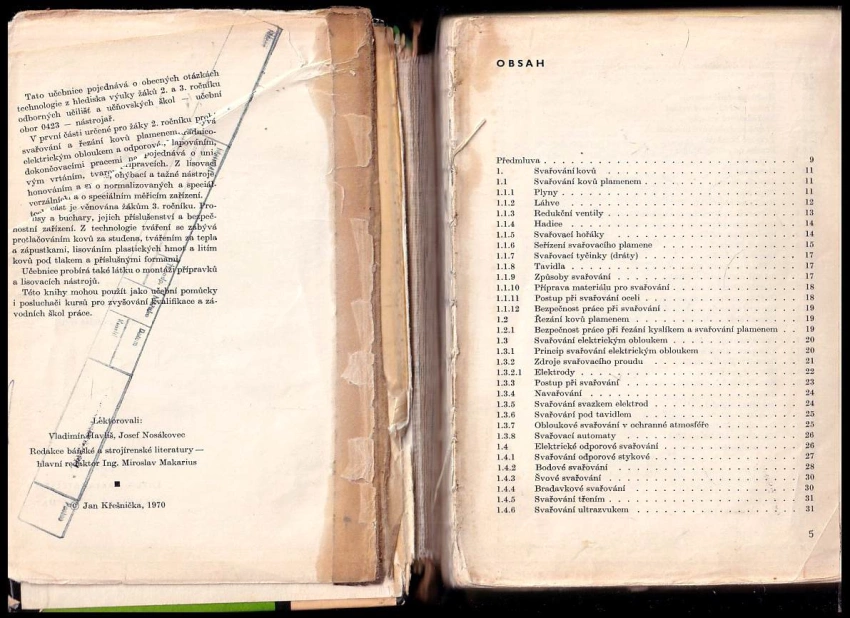 Tato učebnice pojednává o obecných otázkách
technologie z hlediska výuky žáků 2. a 3. ročníku
odborných učilišť a učňovských škol — učební
obor 0423 — nástrojař.
V první části určené pro žáky 2. ročníku
svařování a řezání kovů plamenem,
elektrickým obloukem a odporově, lapováním,
dokončovacími pracemi na pojednává o uni-
vým vrtáním, Z lisovací
honováním a si o normalizovaných a speciál-
a o speciálním měřicím zařízení.
část je věnována žákům 3. ročníku. Pro-
a buchary, jejich příslušenství a bezpeč-
nostní zařízení. Z technologie tváření se zabývá
protlačováním kovů za studena, tvářením za tepla
a zápustkami, lisováním plastických hmot a litím
kovů pod tlakem a příslušnými formami.
Učebnice probírá také látku o montáži přípravků
a lisovacích nástrojů.
Této knihy mohou použít jako učební pomůcky
i posluchači kursů pro zvyšování kvalifikace a zá-
vodních škol práce.
Lektorovali:
Vladimír Havliš, Josef Nosákovec
Redakce báňské a strojírenské literatury —
hlavní redaktor Ing. Miroslav Makarius
© Jan Křešnička, 1970
OBSAH
Předmluva 9
1. Svařování kovů 11
1.1 Svařování kovů plamenem 11
1.1.1 Plyny 11
1.1.2 Láhve 12
1.1.3 Redukční ventily 13
1.1.4 Hadice 14
1.1.5 Svařovací hořáky 14
1.1.6 Seřízení svařovacího plamene 15
1.1.7 Svařovací tyčinky (dráty) 17
1.1.8 Tavidla 17
1.1.9 Způsoby svařování 17
1.1.10 Příprava materiálu pro svařování 18
1.1.11 Postup při svařování oceli 18
1.1.12 Bezpečnost práce při svařování 19
1.2 Řezání kovů plamenem 19
1.2.1 Bezpečnost práce při řezání kyslíkem a svařování plamenem 19
1.3 Svařování elektrickým obloukem 20
1.3.1 Princip svařování elektrickým obloukem 20
1.3.2 Zdroje svařovacího proudu 21
1.3.2.1 Elektrody 22
1.3.3 Postup při svařování 23
1.3.4 Navařování 24
1.3.5 Svařování svazkem elektrod 24
1.3.6 Svařování pod tavidlem 25
1.3.7 Obloukové svařování v ochranné atmosféře 25
1.3.8 Svařovací automaty 26
1.4 Elektrické odporové svařování 26
1.4.1 Svařování odporové stykové 27
1.4.2 Bodové svařování 28
1.4.3 Švové svařování 30
1.4.4 Bradavkové svařování 30
1.4.5 Svařování třením 31
1.4.6 Svařování ultrazvukem 31
5